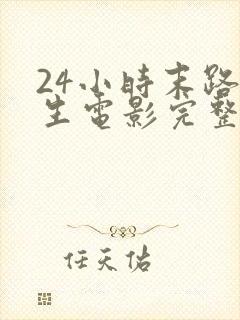 24小時末路
生電影完整
任天佑